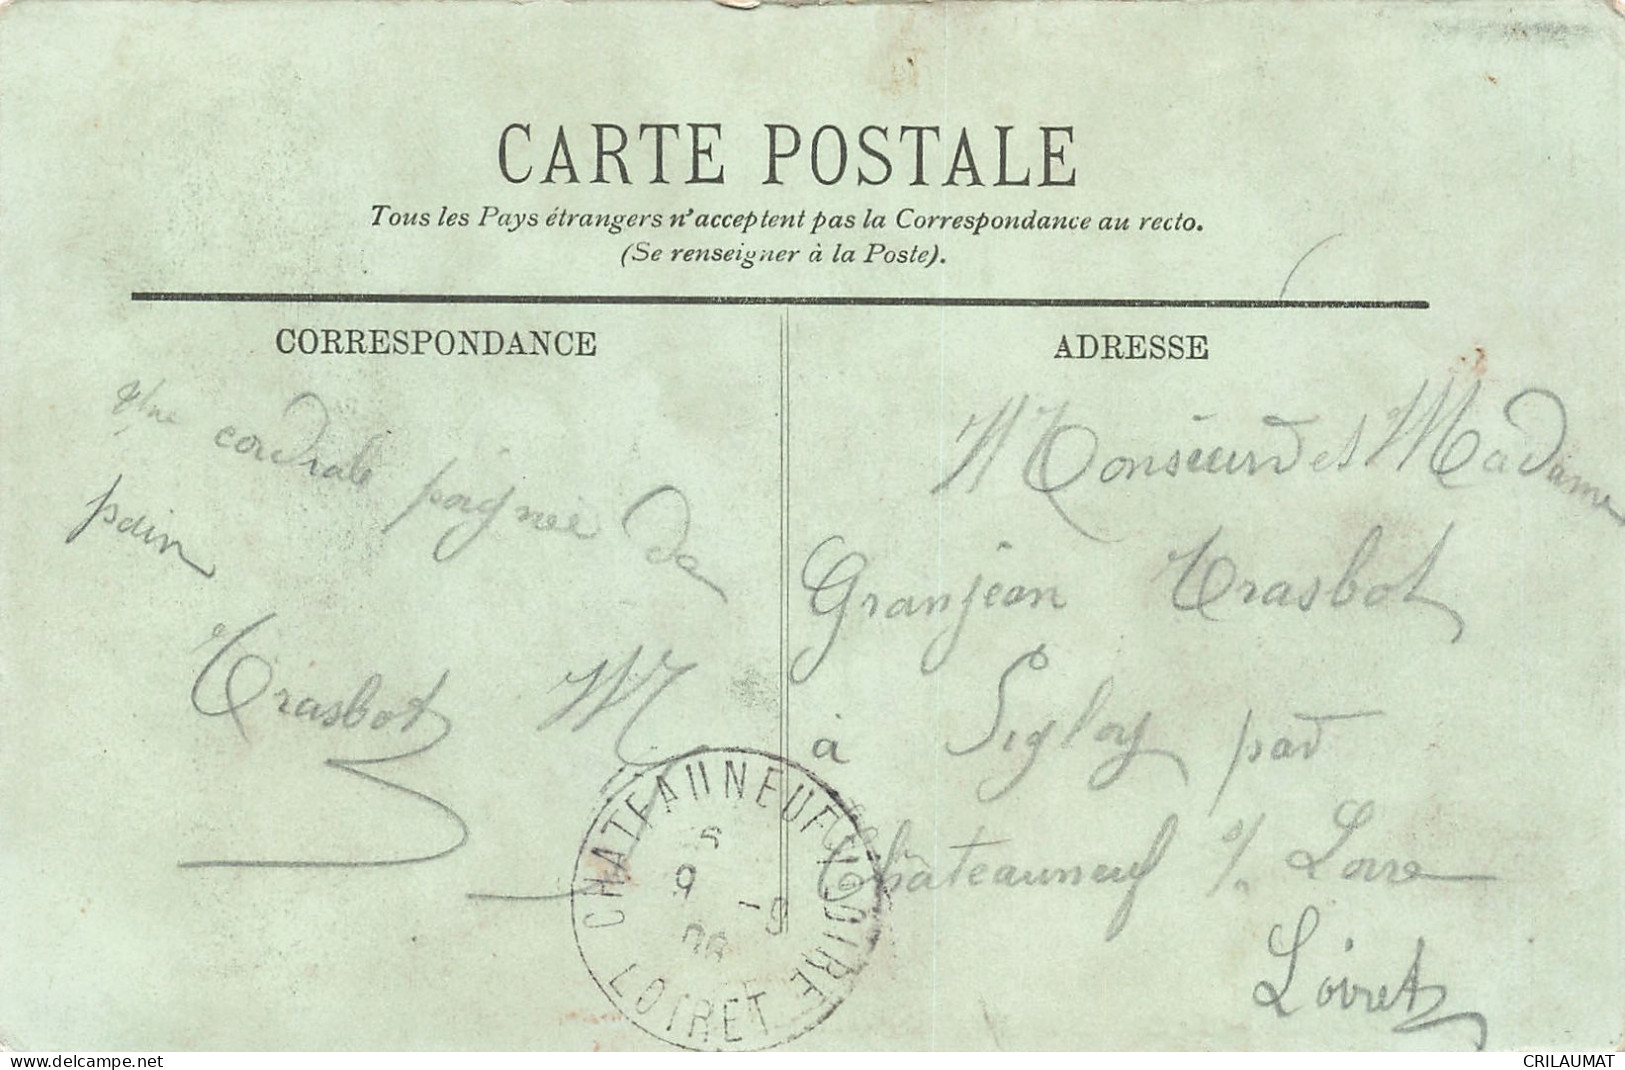 CARTE POSTALE
Tous les Pays étrangers n'acceptent pas la Correspondance au recto.
(Se renseigner à la Poste).
CORRESPONDANCE
Une cordiale poignée de
pain
Trasbot M
ADRESSE
Monsieur et Madame
Granjean Trasbot
à Sigloy par
Châteauneuf s/ Loire
Loiret
CHATEAUNEUF S LOIRE
9 -9
06
LOIRET
delcampe.net
CRILAUMAT